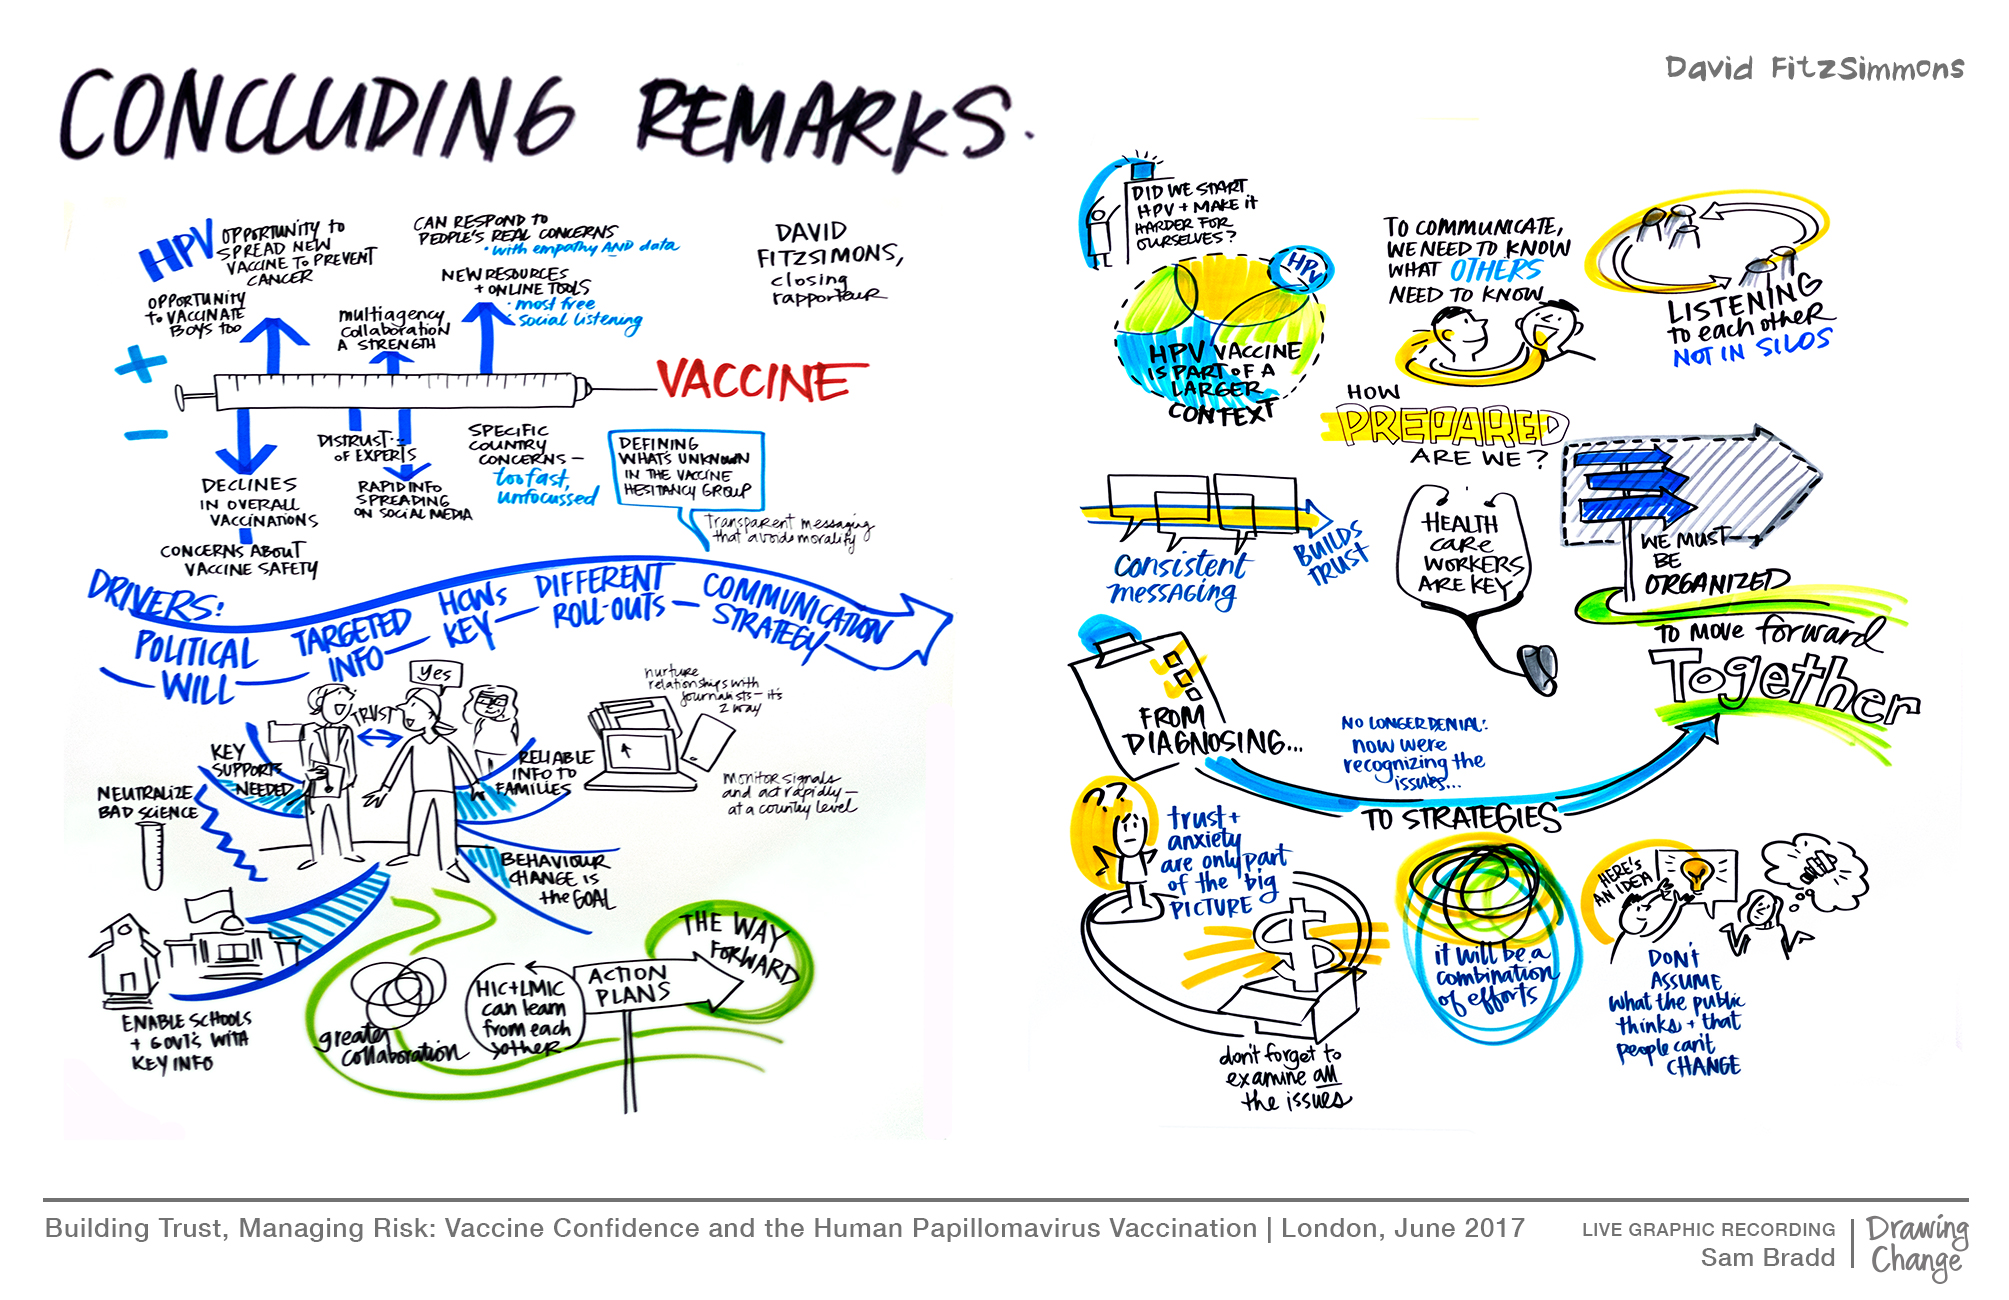 David FitzSimmons
CONCLUDING REMARKS.
HPV
OPPORTUNITY to
SPREAD NEW
VACCINE TO PREVENT
CANCER
OPPORTUNITY
to VACCINATE
BOYS too
CAN RESPOND to
PEOPLE'S REAL CONCERNS
• with empathy AND data
NEW RESOURCES
+ ONLINE TOOLS
• most free
• social listening
multiagency
collaboration
A STRENGTH
DAVID
FITZSIMONS,
closing
rapporteur
+
VACCINE
–
DISTRUST
OF EXPERTS
DECLINES
IN OVERALL
VACCINATIONS
CONCERNS ABOUT
VACCINE SAFETY
RAPID INFO
SPREADING
ON SOCIAL MEDIA
SPECIFIC
COUNTRY
CONCERNS –
too fast,
unfocussed
DEFINING
WHAT'S UNKNOWN
IN THE VACCINE
HESITANCY GROUP
Transparent messaging
that avoids morality
DRIVERS:
POLITICAL
WILL –
TARGETED
INFO –
HOWS
KEY –
DIFFERENT
ROLL-OUTS –
COMMUNICATION
STRATEGY
yes
TRUST
KEY
SUPPORTS
NEEDED
NEUTRALIZE
BAD SCIENCE
RELIABLE
INFO TO
FAMILIES
nurture
relationships with
journalists – it's
2 way
monitor signals
and act rapidly –
at a country level
BEHAVIOUR
CHANGE is
the GOAL
ENABLE SCHOOLS
+ GOVT'S WITH
KEY INFO
greater
collaboration
HIC+LMIC
can learn
from each
other
ACTION
PLANS
THE WAY
FORWARD
DID WE START
HPV + MAKE it
HARDER FOR
OURSELVES?
HPV
HPV VACCINE
IS PART OF A
LARGER
CONTEXT
TO COMMUNICATE,
WE NEED TO KNOW
WHAT OTHERS
NEED TO KNOW
LISTENING
to each other
NOT IN SILOS
HOW
PREPARED
ARE WE?
Consistent
messaging
BUILDS
TRUST
HEALTH
care
WORKERS
ARE KEY
WE MUST
BE
ORGANIZED
TO MOVE forward
Together
FROM
DIAGNOSING...
NO LONGER DENIAL:
now were
recognizing the
issues...
TO STRATEGIES
??
trust +
anxiety
are only part
of the big
PICTURE
$
don't forget to
examine all
the issues
it will be a
combination
of efforts
HERE'S
AN IDEA
DON'T
ASSUME
what the public
thinks + that
people can't
CHANGE
Building Trust, Managing Risk: Vaccine Confidence and the Human Papillomavirus Vaccination | London, June 2017
LIVE GRAPHIC RECORDING
Sam Bradd
Drawing
Change